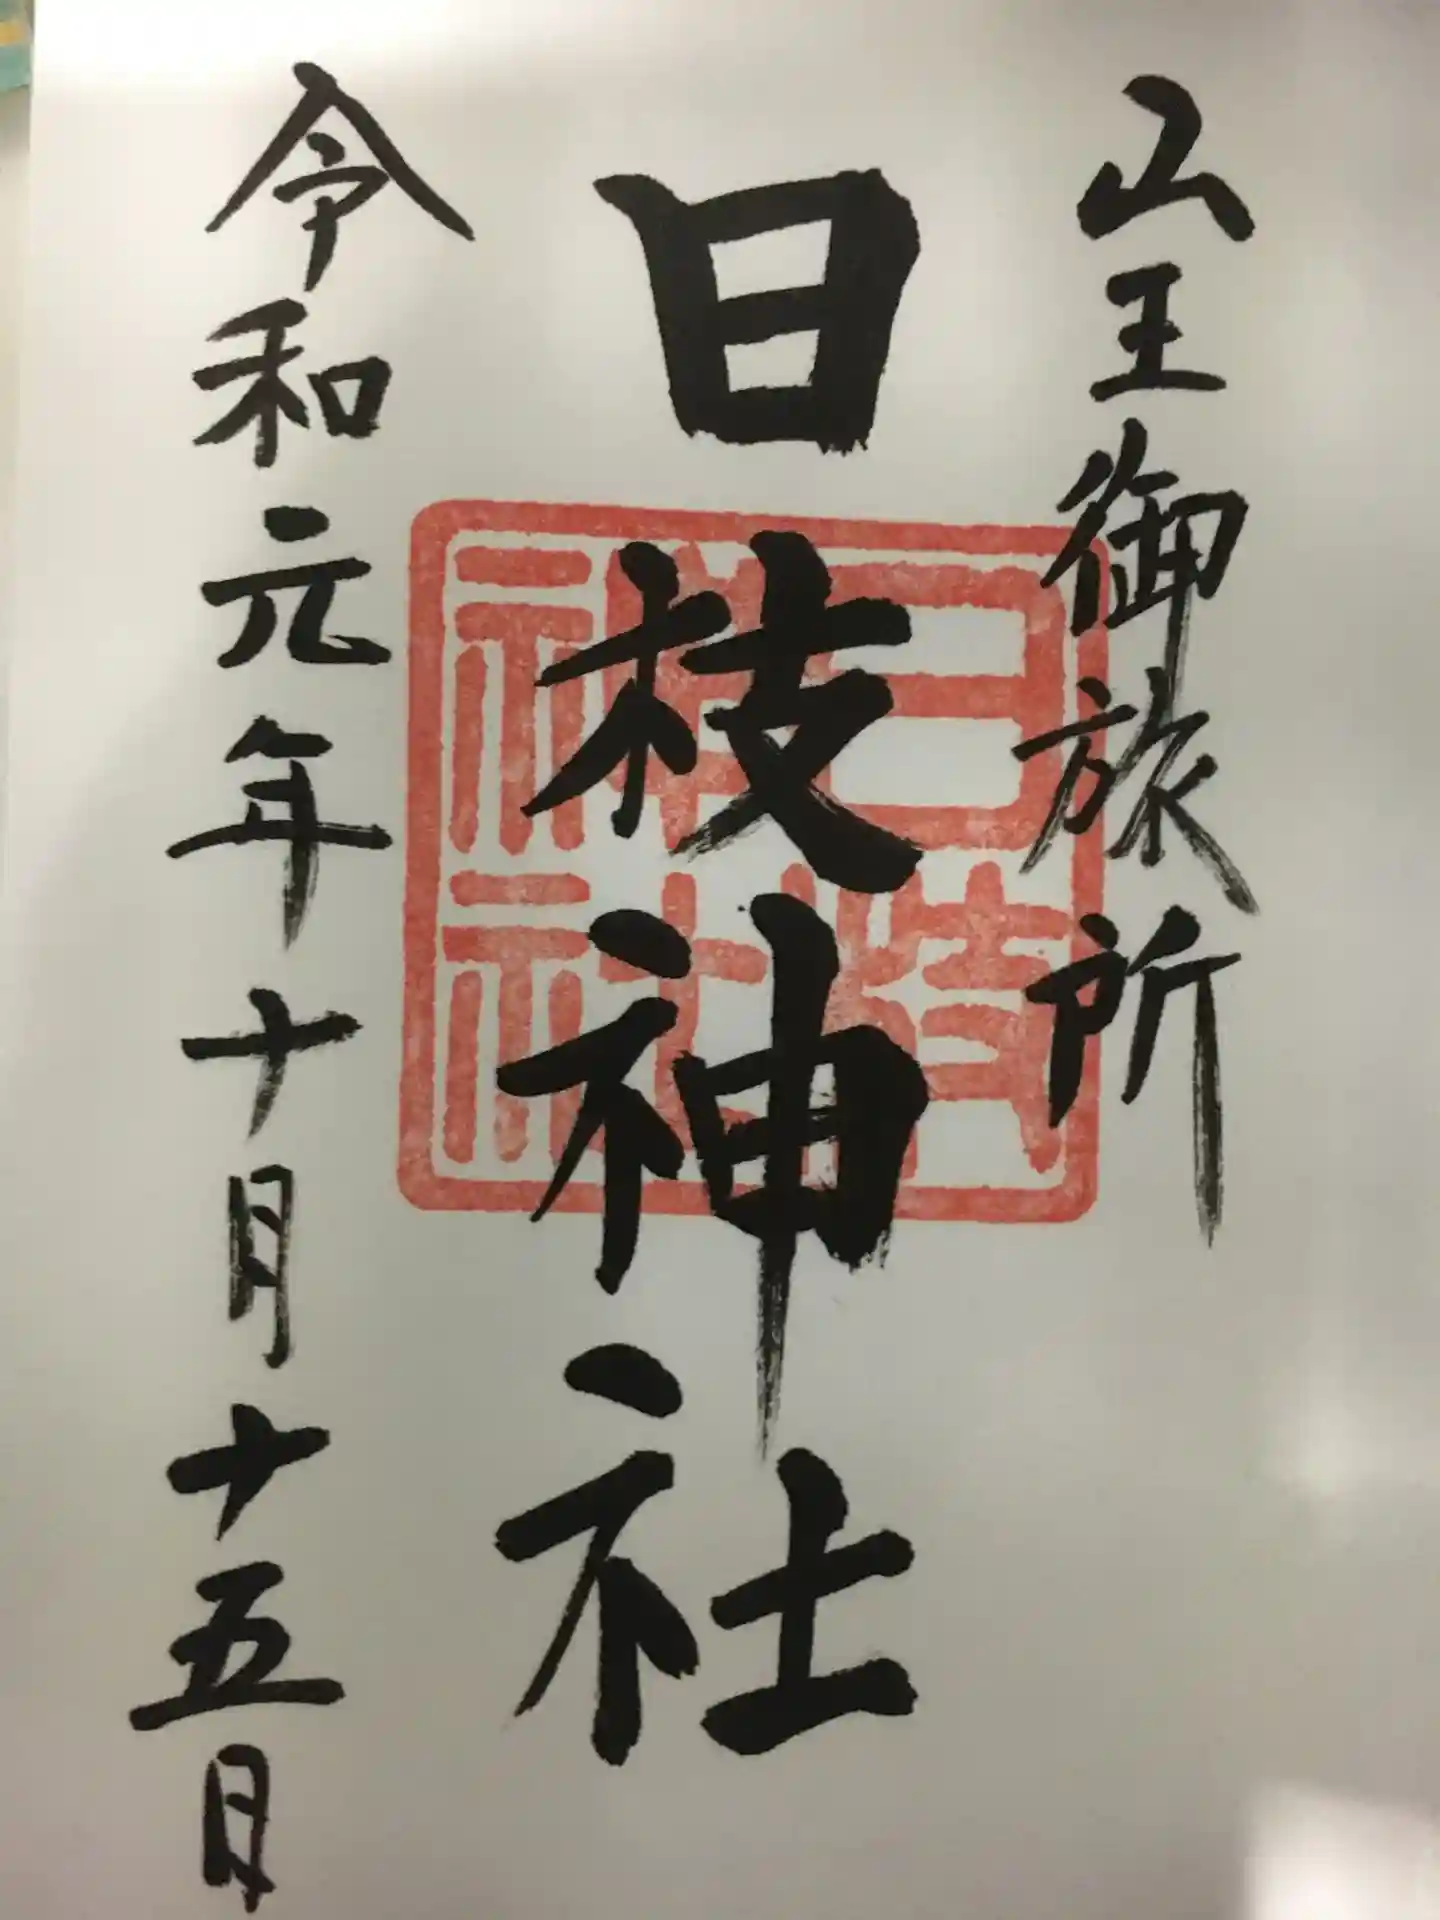 山王御旅所
日枝神社
令和元年十月十五日
日枝
神社